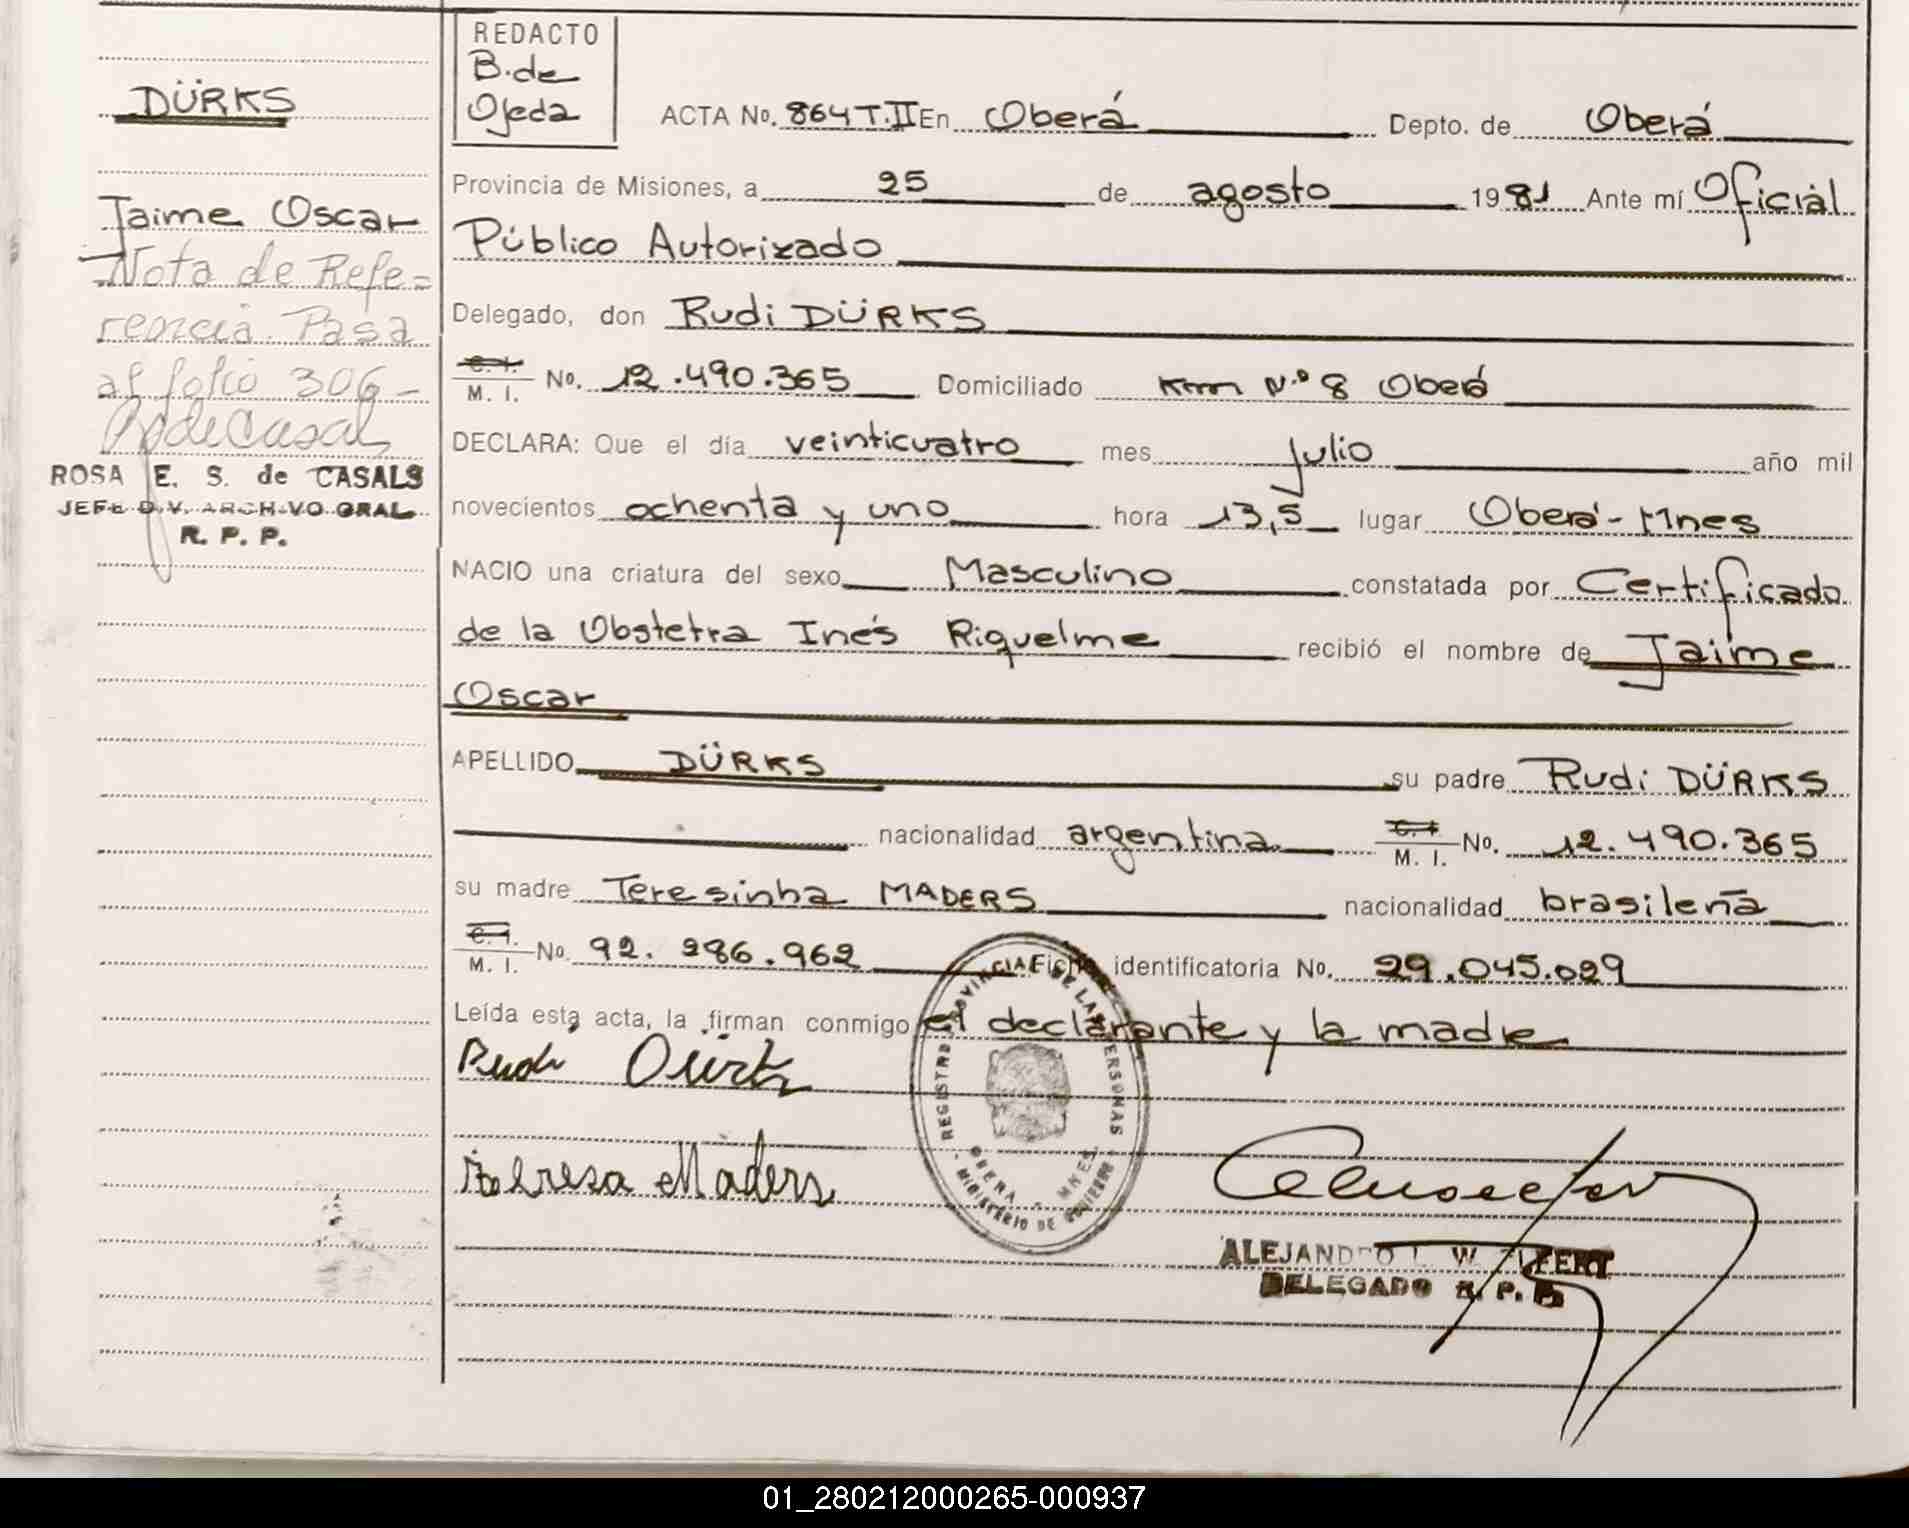 DÜRKS
Jaime Oscar
Nota de Refe-
rencia. Pasa
al folio 306-
ROSA E. S. de CASALS
JEFE DIV. ARCHIVO GRAL.
R. P. P.
REDACTO
B. de
Ojeda
ACTA No. 864 T.II En Oberá Depto. de Oberá
Provincia de Misiones, a 25 de agosto 1981 Ante mí Oficial
Público Autorizado
Delegado, don Rudi DÜRKS
C. I. M. I. No. 12.490.365 Domiciliado Km N.º 8 Oberá
DECLARA: Que el día veinticuatro mes Julio año mil
novecientos ochenta y uno hora 13,5 lugar Oberá-Mnes
NACIO una criatura del sexo Masculino constatada por Certificado
de la Obstetra Inés Riquelme recibió el nombre de Jaime
Oscar
APELLIDO DÜRKS su padre Rudi DÜRKS
nacionalidad argentina C. I. M. I. No. 12.490.365
su madre Teresinha MADERS nacionalidad brasileña
C. I. M. I. No. 92.286.962 Ficha identificatoria No. 29.045.029
Leída esta acta, la firman conmigo el declarante y la madre
Rudi Dürks
Teresa Maders
REGISTRO PROVINCIAL DE LAS PERSONAS
OBERA - MNES.
MINISTERIO DE GOBIERNO
ALEJANDRO L. W.
DELEGADO R. P. P.
01_280212000265-000937